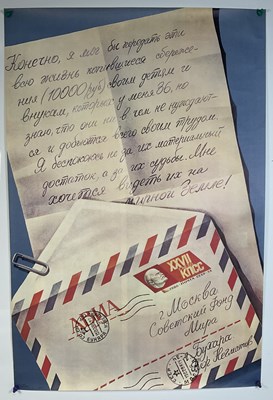 Конечно, я мог бы передать эти
всю жизнь копившиеся сбереже-
ния (10000 руб) своим детям и
внукам, которых у меня 36, но
знаю, что они ни в чем не нуждают-
ся и добьются всего своим трудом.
Я беспокоюсь не за их материальный
достаток, а за их судьбы. Мне
хочется видеть их на
мирной Земле!
АВИА
XXVII
КПСС
г. Москва
Советский Фонд
Мира
Бухара
Негматов